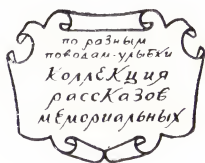 по разным
поводам-улыбки
КоллЕКция
рассКаЗов
мЕмориальных